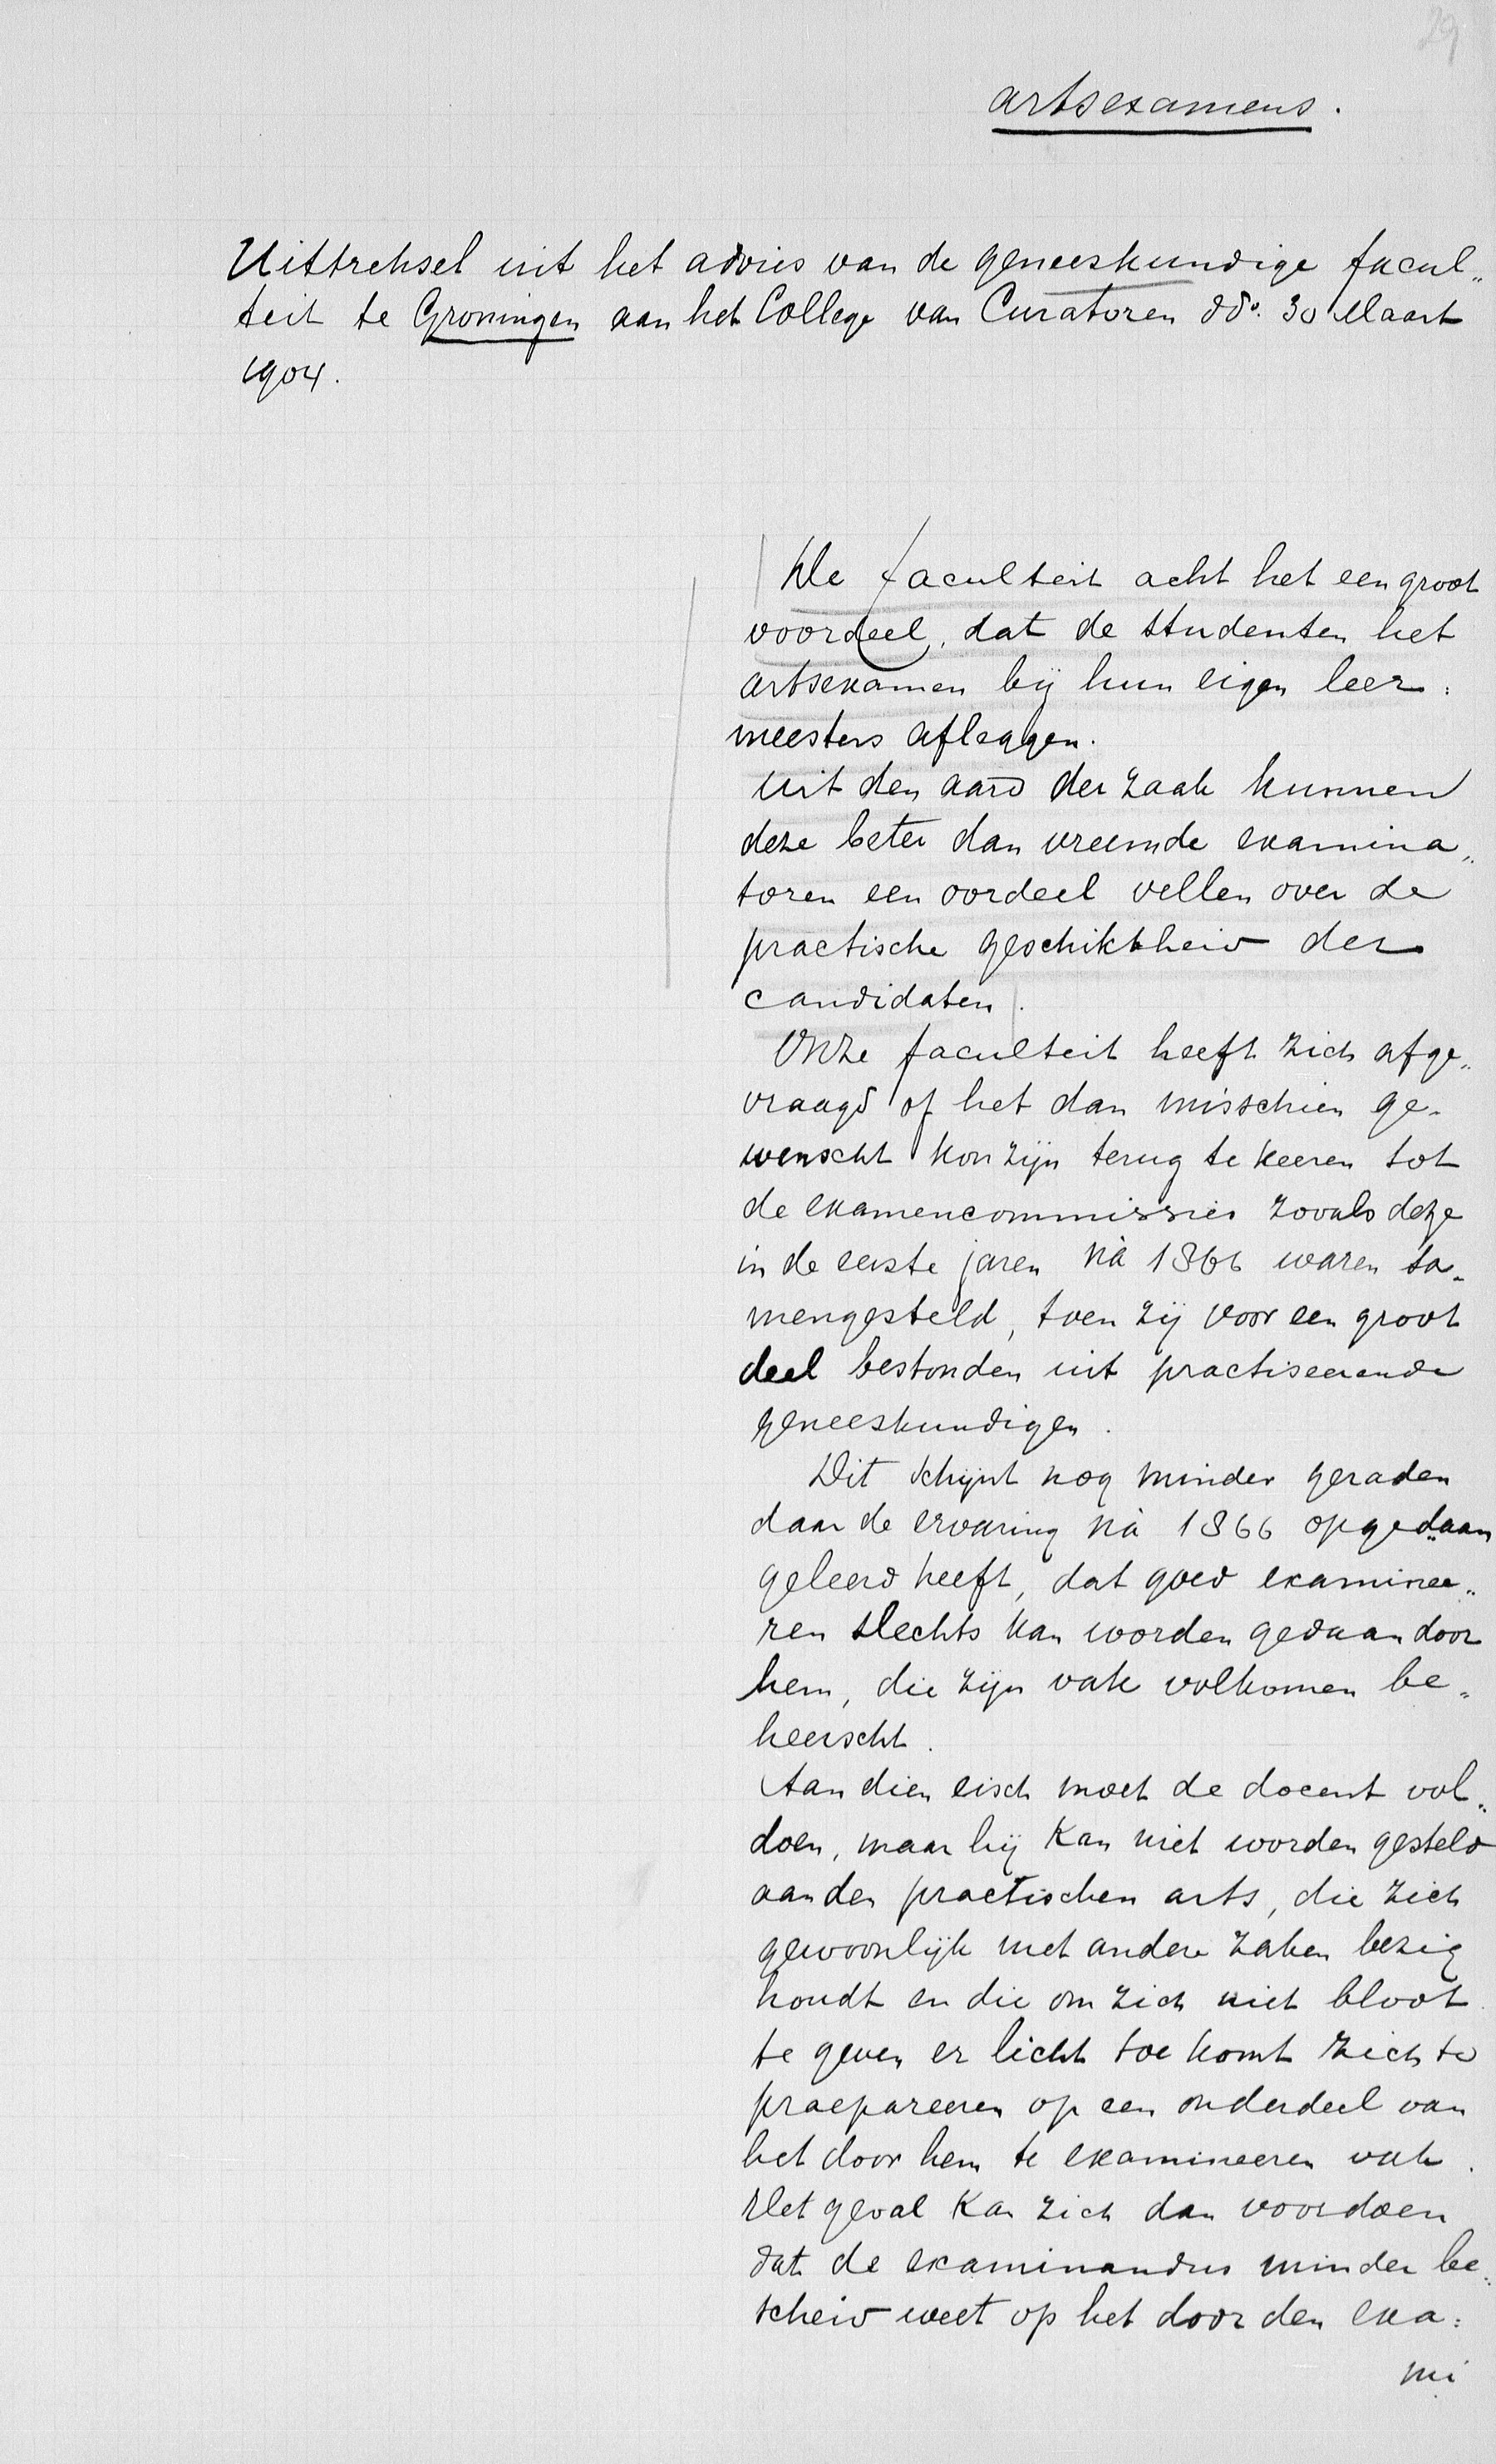 29
artsexamens.
Uittreksel uit het advies van de geneeskundige facul„
teit te Groningen aan het College van Curatoren dd°. 30 Maart
1904.
De faculteit acht het een groot
voordeel, dat de studenten het
artsexamen bij hun eigen leer:
meesters afleggen.
Uit den aard der zaak kunnen
deze beter dan vreemde examina„
toren een oordeel vellen over de
practische geschiktheid der
candidaten.
Onze faculteit heeft zich afge„
vraagd of het dan misschien ge-
wenscht kon zijn terug te keeren tot
de examencommissies zooals deze
in de eerste jaren nà 1866 waren sa„
mengesteld, toen zij voor een groot
deel bestonden uit practiseerende
geneeskundigen.
Dit schijnt nog minder geraden
daar de ervaring nà 1866 opgedaan
geleerd heeft, dat goed examinee„
ren slechts kan worden gedaan door
hem, die zijn vak volkomen be„
heerscht.
Aan dien eisch moet de docent vol„
doen, maar hij kan niet worden gesteld
aan den practischen arts, die zich
gewoonlijk met andere zaken bezig
houdt en die om zich niet bloot
te geven er licht toe komt zich te
praepareeren op een onderdeel van
het door hem te examineeren vak.
Het geval kan zich dan voordoen
dat de examinandus minder be„
scheid weet op het door den exa:
mi